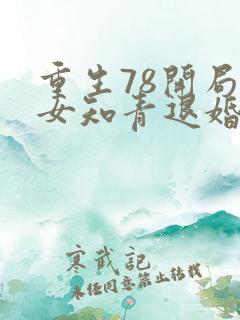 重生78开局
女知青退婚
寒武记
未经同意禁止转载